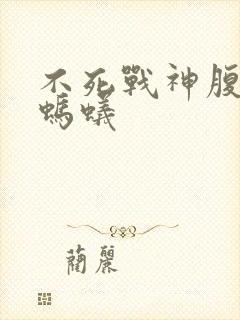 不死戰神腹
螞蟻
蘭麗